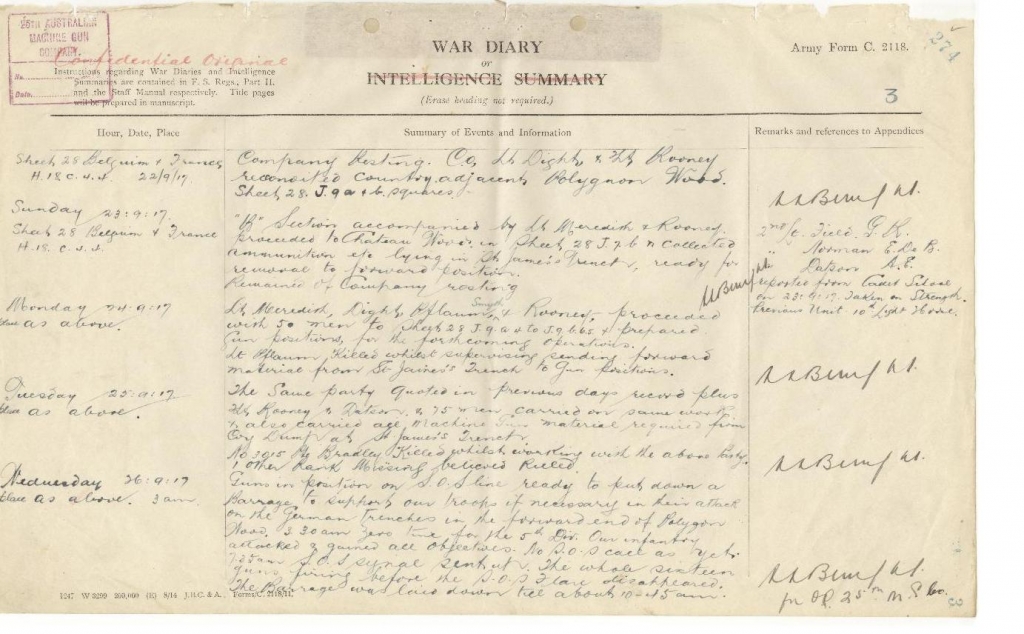 25TH AUSTRALIAN
MACHINE GUN
COMPANY.
No.
Date.
Confidential Original
Instructions regarding War Diaries and Intelligence
Summaries are contained in F. S. Regs., Part II.
and the Staff Manual respectively. Title pages
will be prepared in manuscript.
WAR DIARY
or
INTELLIGENCE SUMMARY
(Erase heading not required.)
Army Form C. 2118.
274
3
Hour, Date, Place
Summary of Events and Information
Remarks and references to Appendices
Sheet 28 Belguim & France
H.18.c.4.4. 22/9/17.
Company Resting. C.O, Lt Dight, & Lt Rooney
reconoited country adjacent Polygnon Wood.
Sheet 28. J.9.a & b. squares.
Sunday 23.9.17.
Sheet 28 Belgium & France
H.18.c.4.4.
"B" Section accompanied by Lt Meredith & Rooney
proceeded to Chateau Wood. in Sheet 28 J.7.b & collected
ammunition etc lying in St James's Trench, ready for
removal to forward position.
Remained of Company resting
2nd/Lt. Field, G.R.
" Norman E. De B.
" Datson A.E.
reported from Cadet School
on 23.9.17. Taken on Strength.
Previous Unit 10th Light Horse.
Monday 24.9.17
Place as above.
Lt Meredith, Dight, Pflaum, & Rooney, proceeded
with 50 men to Sheet 28 J.9.a & to J.9.b.6.5 & prepared
Gun positions, for the forthcoming operations.
Lt Pflaum, Killed whilst supervising sending forward
material from St James's Trench to Gun positions.
Tuesday 25.9.17
Place as above.
The Same party quoted in previous days record plus
Lts Rooney & Datson & 75 men carried on same work.
& also carried all Machine Gun material required from
Coy Dump at St James's Trench.
No 3915 Pte Bradley Killed whilst working with the above party.
1 other Rank Missing believed Killed.
Wednesday 26.9.17
Place as above. 3am
Guns in position on S.O.S line ready to put down a
Barrage to support our troops if necessary in their attack
on the German trenches in the forward end of Polygon
Wood. 3.30am Zero time for the 5th Div. Our infantry
attacked & gained all objectives. No S.O.S call as yet.
7.25am S.O.S signal sent up. The whole sixteen
guns firing before the S.O.S Flare disappeared.
The Barrage was laid down till about 10.45am.
for OC 25th M.G. Co.
1247 W 3299 200,000 (E) 8/14 J.B.C. & A. Forms/C. 2118/11.